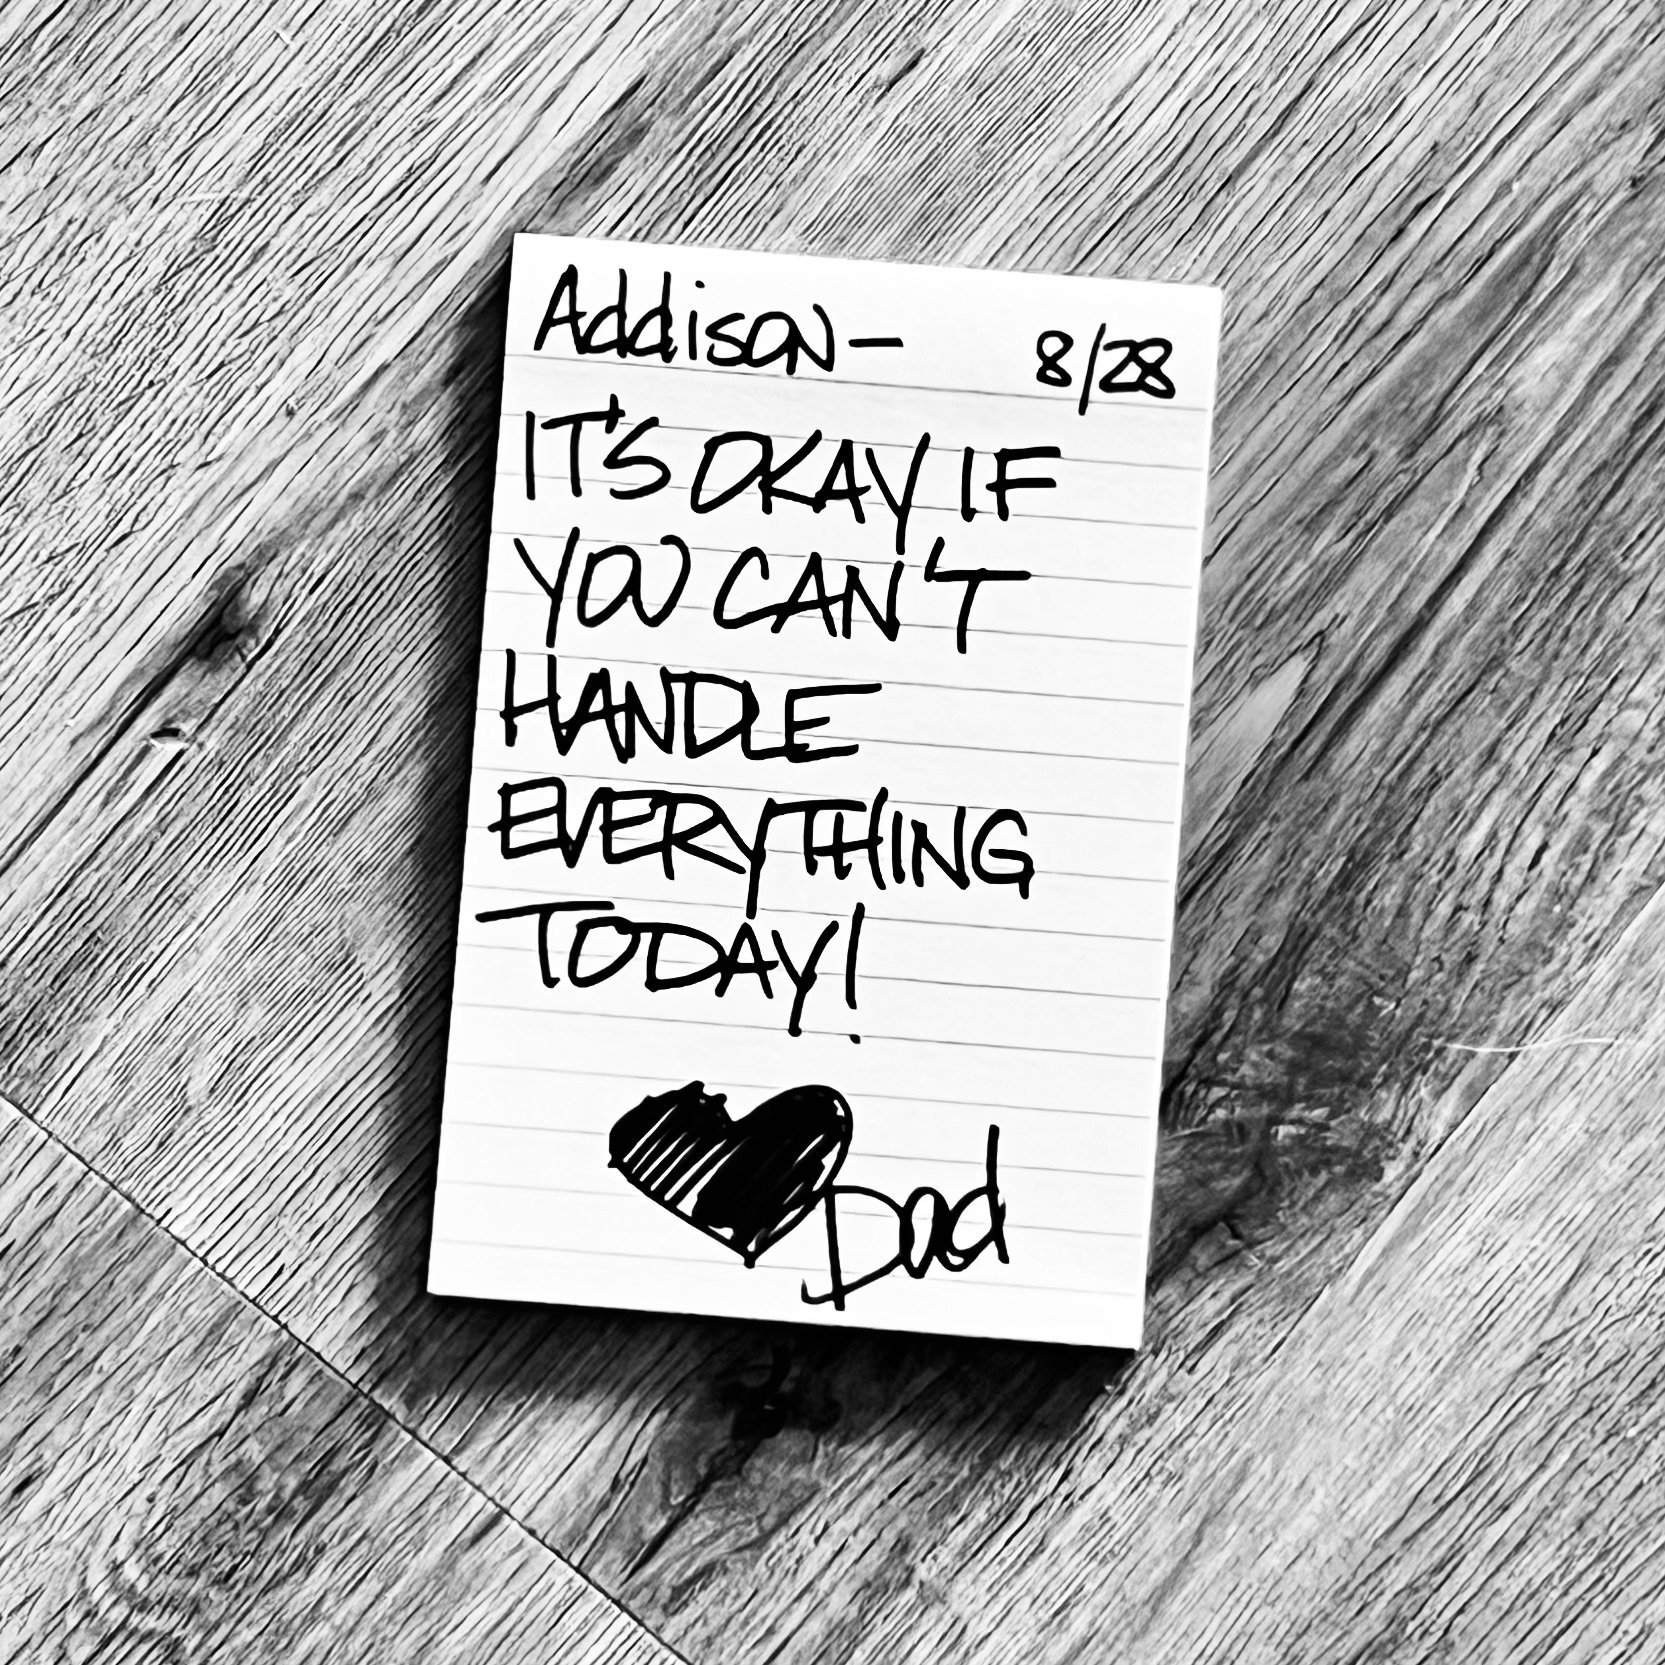 Addison – 8/28
IT'S OKAY IF
YOU CAN'T
HANDLE
EVERYTHING
TODAY!
Dad